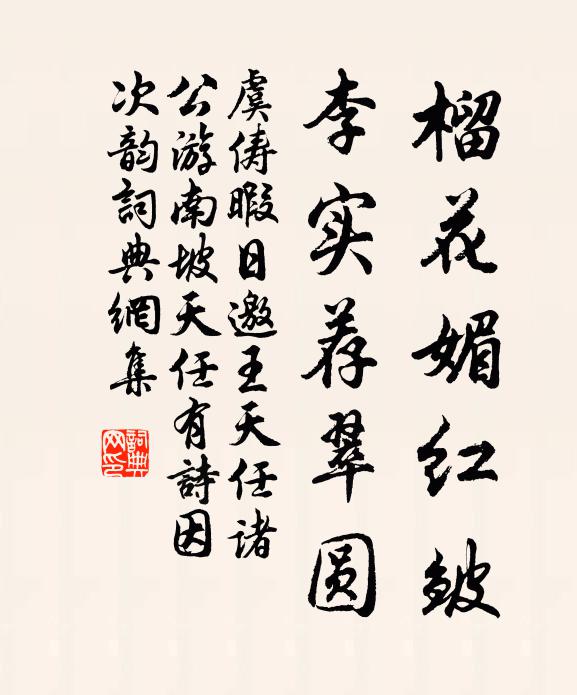 榴花媚红皱
李实荐翠圆
虞俦暇日邀王天任诸
公游南坡天任有詩因
次韵詞典網集
詞典
网印